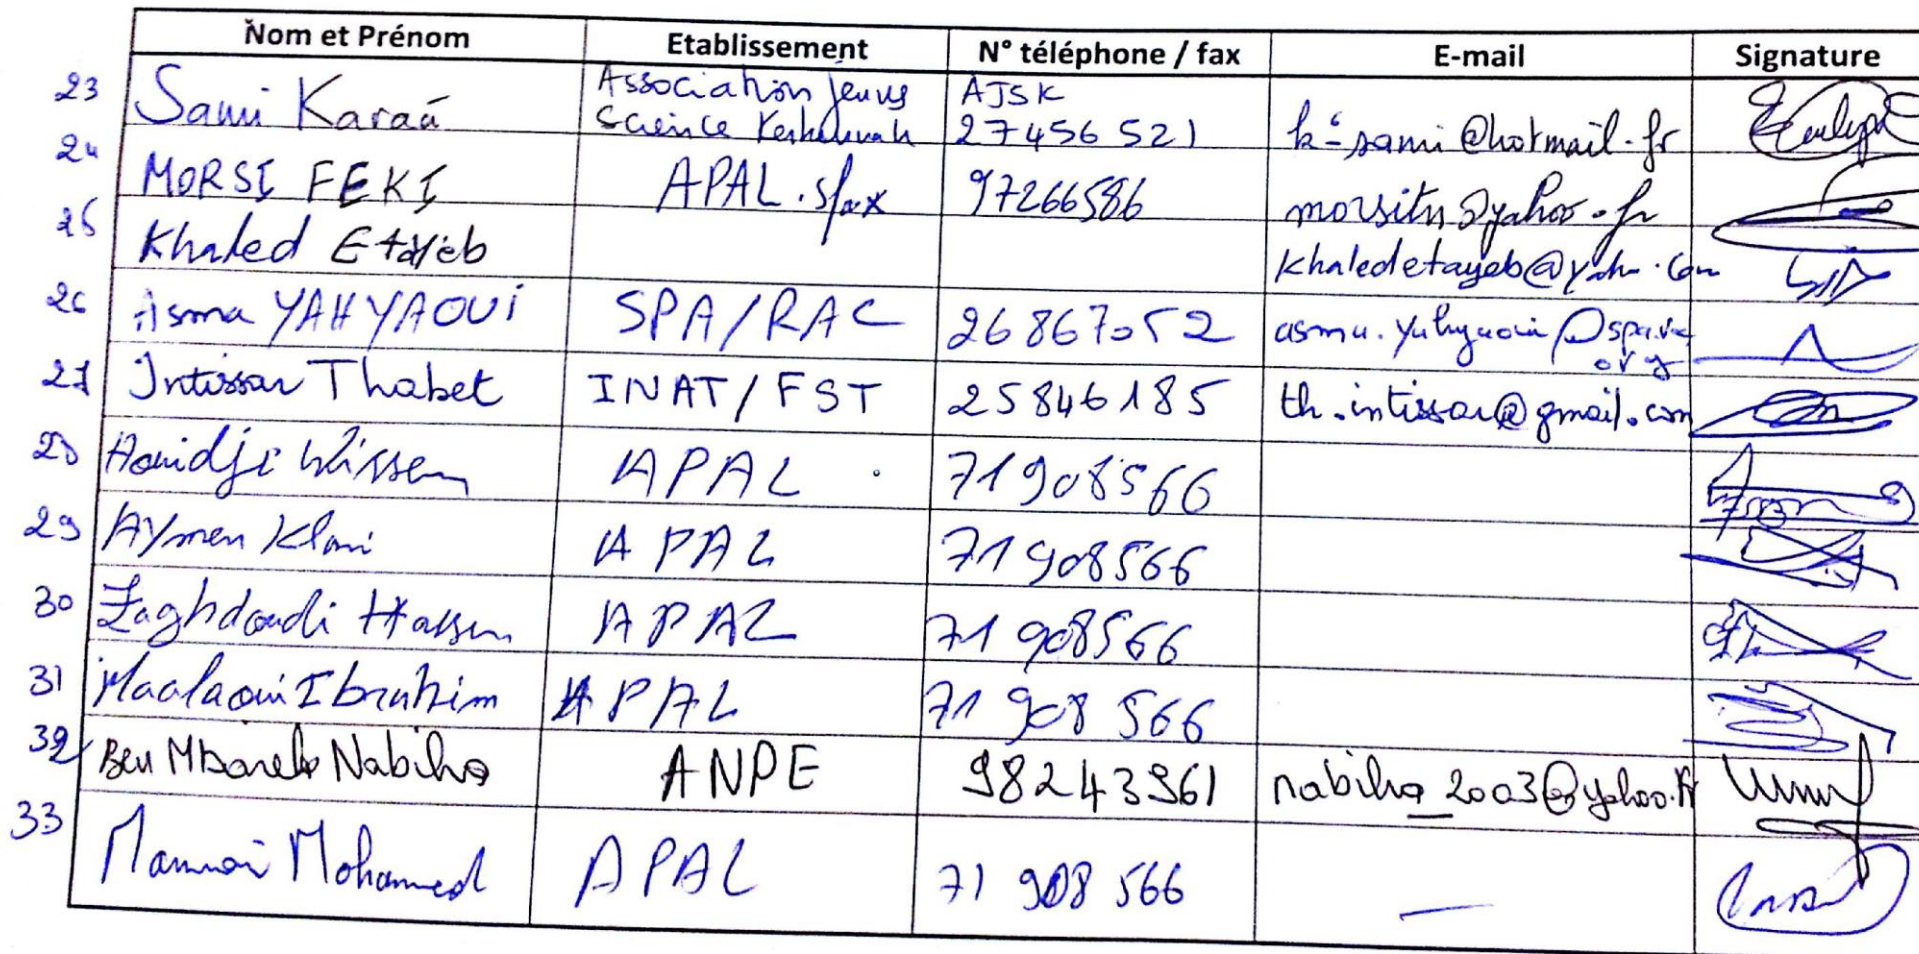 Nom et Prénom Etablissement N° téléphone / fax E-mail Signature
23 Sami Karaá Association Jeunes AJSK
Science Kerkennah 27456 521 k-sami@hotmail.fr
24 MORSI FEKI APAL.sfax 97266586 morsitn@yahoo.fr
25 Khaled Etayeb khaledetayeb@yahoo.com
26 Asma YAHYAOUI SPA/RAC 26867052 asma.yahyaoui@spa.rac
org
27 Intissar Thabet INAT/FST 25846185 th.intissar@gmail.com
28 Aouidji Wissem APAL 71908566
29 Aymen Klai APAL 71908566
30 Zaghdoudi Hassen APAL 71 908566
31 Maalaoui Ibrahim APAL 71 908 566
32 Ben Mbarek Nabiha ANPE 98243961 nabiha_2003@yahoo.fr
33 Mohamed APAL 71 908 566 —